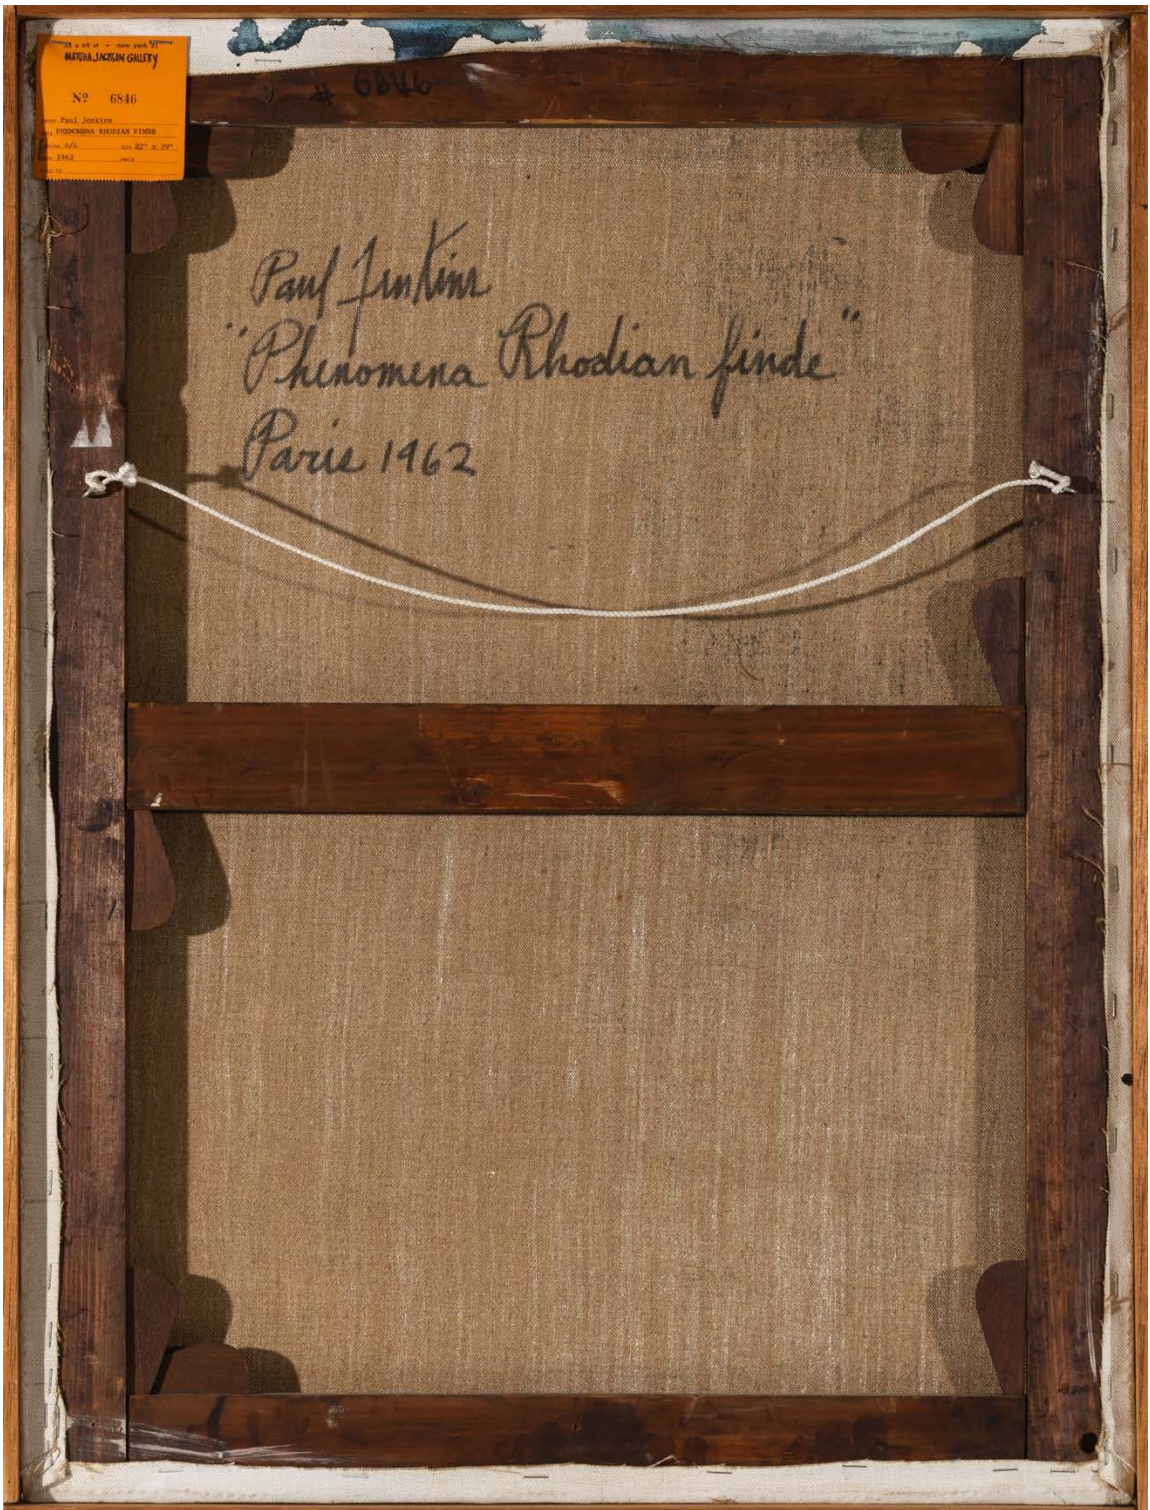 32 e 69 st • new york 21
MARTHA JACKSON GALLERY
Nº 6846
Paul Jenkins
PHENOMENA RHODIAN FINDE
O/C SIZE 22" X 29"
1962 PRICE
# 6846
Paul Jenkins
"Phenomena Rhodian finde"
Paris 1962